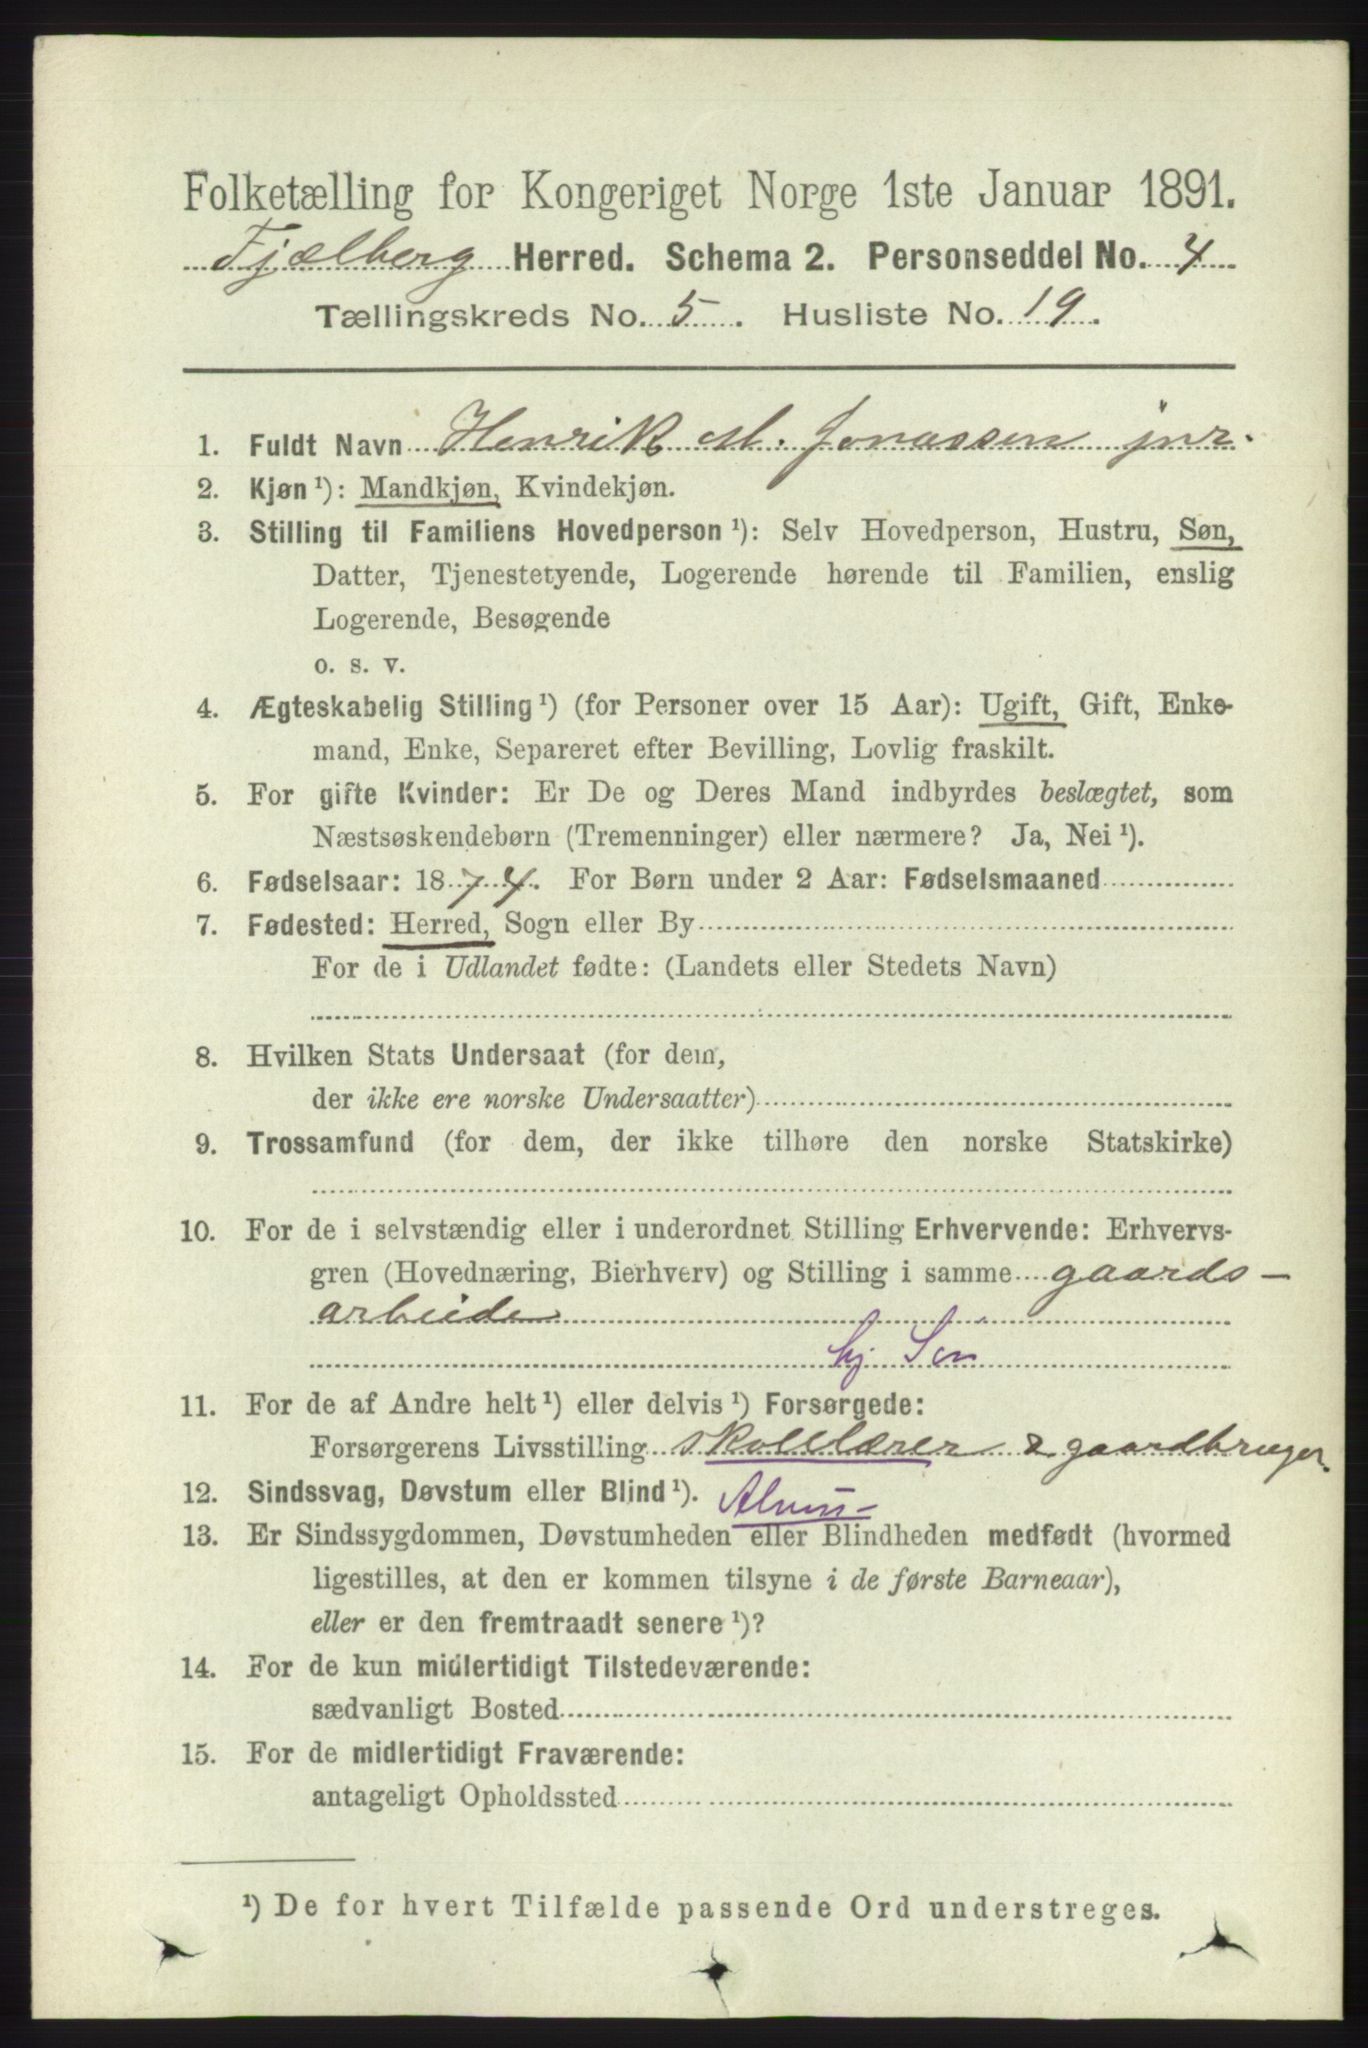 Folketælling for Kongeriget Norge 1ste Januar 1891.
Fjælberg Herred. Schema 2. Personseddel No. 4
Tællingskreds No. 5. Husliste No. 19.
1. Fuldt Navn Henrik M. Jonassen jnr.
2. Kjøn ¹): Mandkjøn, Kvindekjøn.
3. Stilling til Familiens Hovedperson ¹): Selv Hovedperson, Hustru, Søn,
Datter, Tjenestetyende, Logerende hørende til Familien, enslig
Logerende, Besøgende
o. s. v.
4. Ægteskabelig Stilling ¹) (for Personer over 15 Aar): Ugift, Gift, Enke-
mand, Enke, Separeret efter Bevilling, Lovlig fraskilt.
5. For gifte Kvinder: Er De og Deres Mand indbyrdes beslægtet, som
Næstsøskendebørn (Tremenninger) eller nærmere? Ja, Nei ¹).
6. Fødselsaar: 1874. For Børn under 2 Aar: Fødselsmaaned
7. Fødested: Herred, Sogn eller By
For de i Udlandet fødte: (Landets eller Stedets Navn)
8. Hvilken Stats Undersaat (for dem,
der ikke ere norske Undersaatter)
9. Trossamfund (for dem, der ikke tilhøre den norske Statskirke)
10. For de i selvstændig eller i underordnet Stilling Erhvervende: Erhvervs-
gren (Hovednæring, Bierhverv) og Stilling i samme gaards-
arbeide
hj Søn
11. For de af Andre helt ¹) eller delvis ¹) Forsørgede:
Forsørgerens Livsstilling skolelærer & gaardbruger.
12. Sindssvag, Døvstum eller Blind ¹).
13. Er Sindssygdommen, Døvstumheden eller Blindheden medfødt (hvormed
ligestilles, at den er kommen tilsyne i de første Barneaar),
eller er den fremtraadt senere ¹)?
14. For de kun midlertidigt Tilstedeværende:
sædvanligt Bosted
15. For de midlertidigt Fraværende:
antageligt Opholdssted
¹) De for hvert Tilfælde passende Ord understreges.